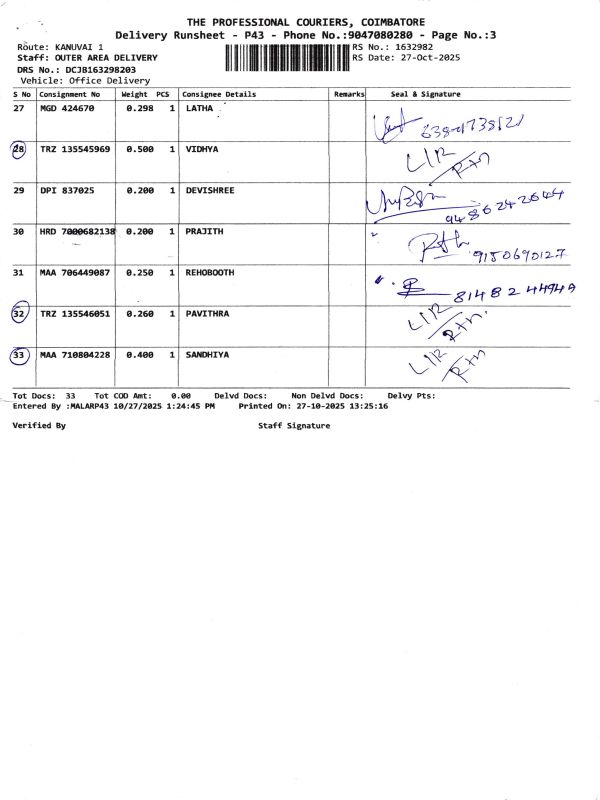 THE PROFESSIONAL COURIERS, COIMBATORE
Delivery Runsheet - P43 - Phone No.:9047080280 - Page No.:3
Route: KANUVAI 1 RS No.: 1632982
Staff: OUTER AREA DELIVERY RS Date: 27-Oct-2025
DRS No.: DCJB163298203
Vehicle: Office Delivery
S No Consignment No Weight PCS Consignee Details Remarks Seal & Signature
27 MGD 424670 0.298 1 LATHA
28 TRZ 135545969 0.500 1 VIDHYA L/R Rtn
29 DPI 837025 0.200 1 DEVISHREE 9486242644
30 HRD 7000682138 0.200 1 PRAJITH 9150690127
31 MAA 706449087 0.250 1 REHOBOOTH 8148244949
32 TRZ 135546051 0.260 1 PAVITHRA L/R Rtn.
33 MAA 710804228 0.400 1 SANDHIYA L/R Rtn
Tot Docs: 33 Tot COD Amt: 0.00 Delvd Docs: Non Delvd Docs: Delvy Pts:
Entered By :MALARP43 10/27/2025 1:24:45 PM Printed On: 27-10-2025 13:25:16
Verified By Staff Signature